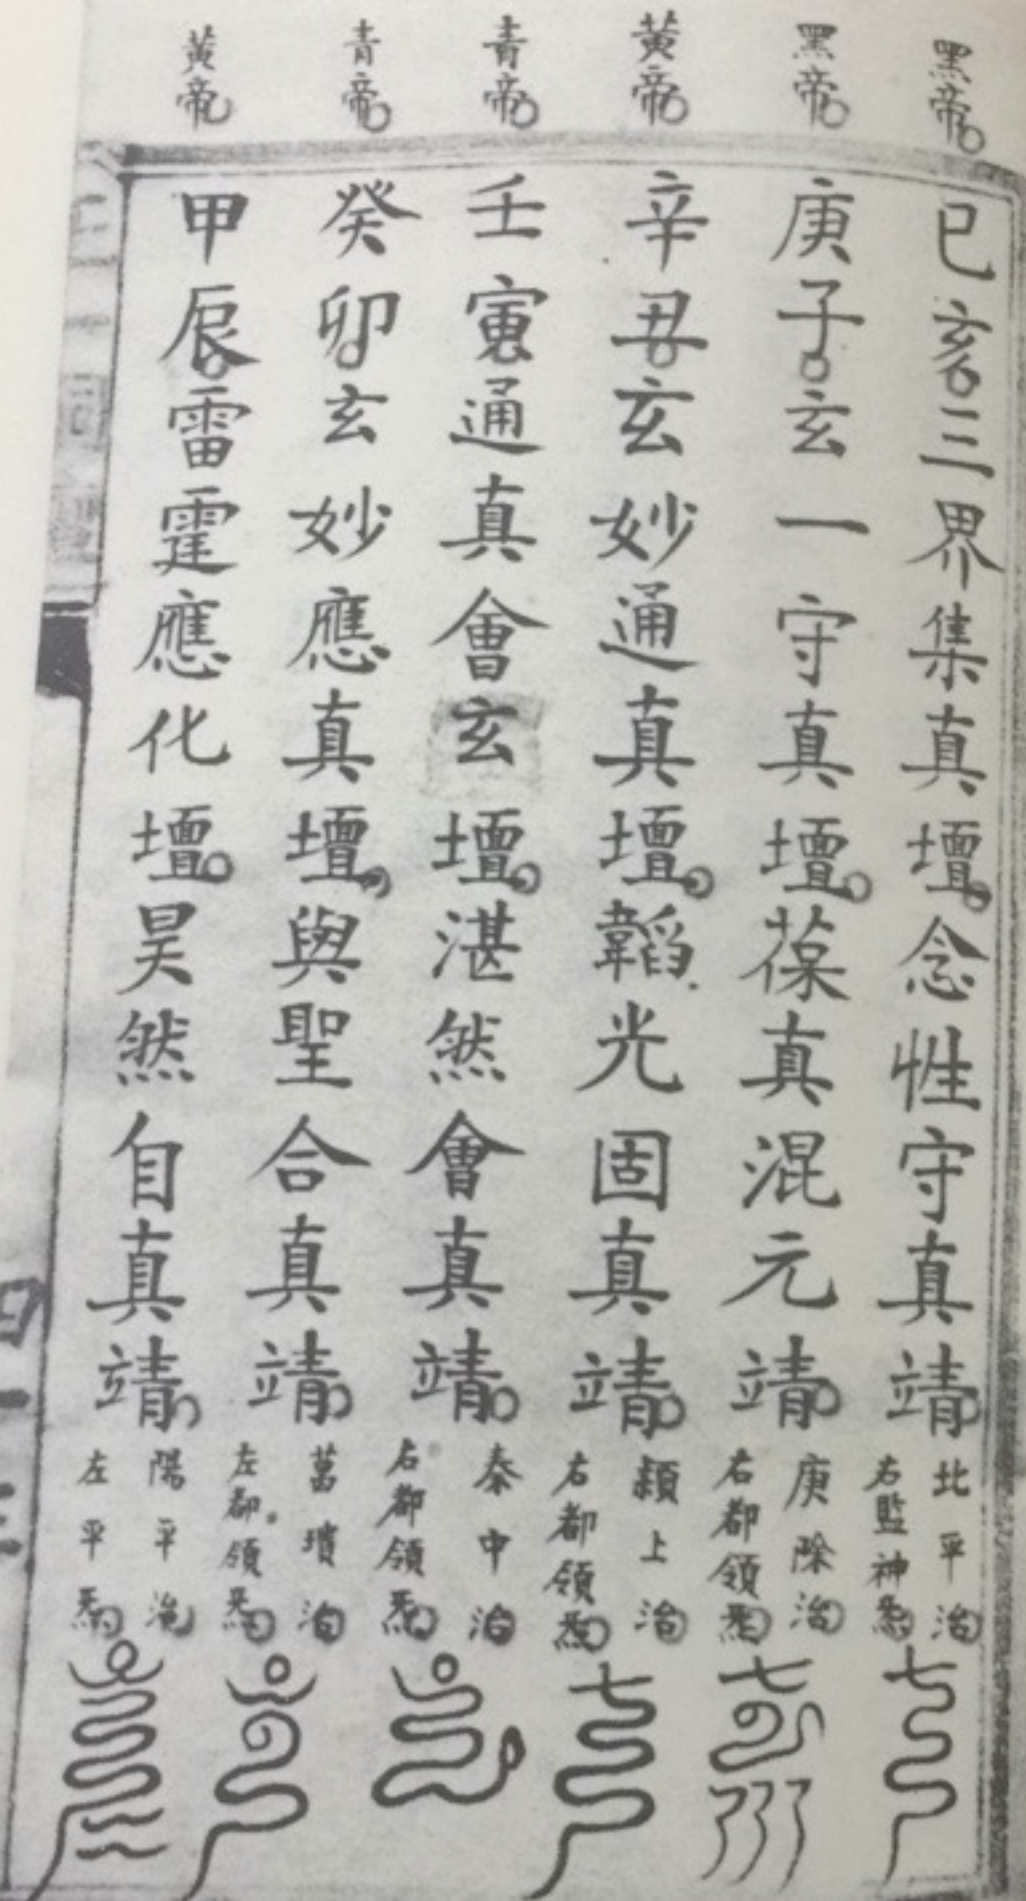 黑帝
己亥三界集真壇念性守真靖
北平治
右監神炁
黑帝
庚子玄一守真壇葆真混元靖
庚除治
右都領炁
黃帝
辛丑玄妙通真壇韜光固真靖
潁上治
右都領炁
青帝
壬寅通真會玄壇湛然會真靖
秦中治
右都領炁
青帝
癸卯玄妙應真壇與聖合真靖
葛璝治
左都領炁
黃帝
甲辰雷霆應化壇昊然自真靖
陽平治
左平炁